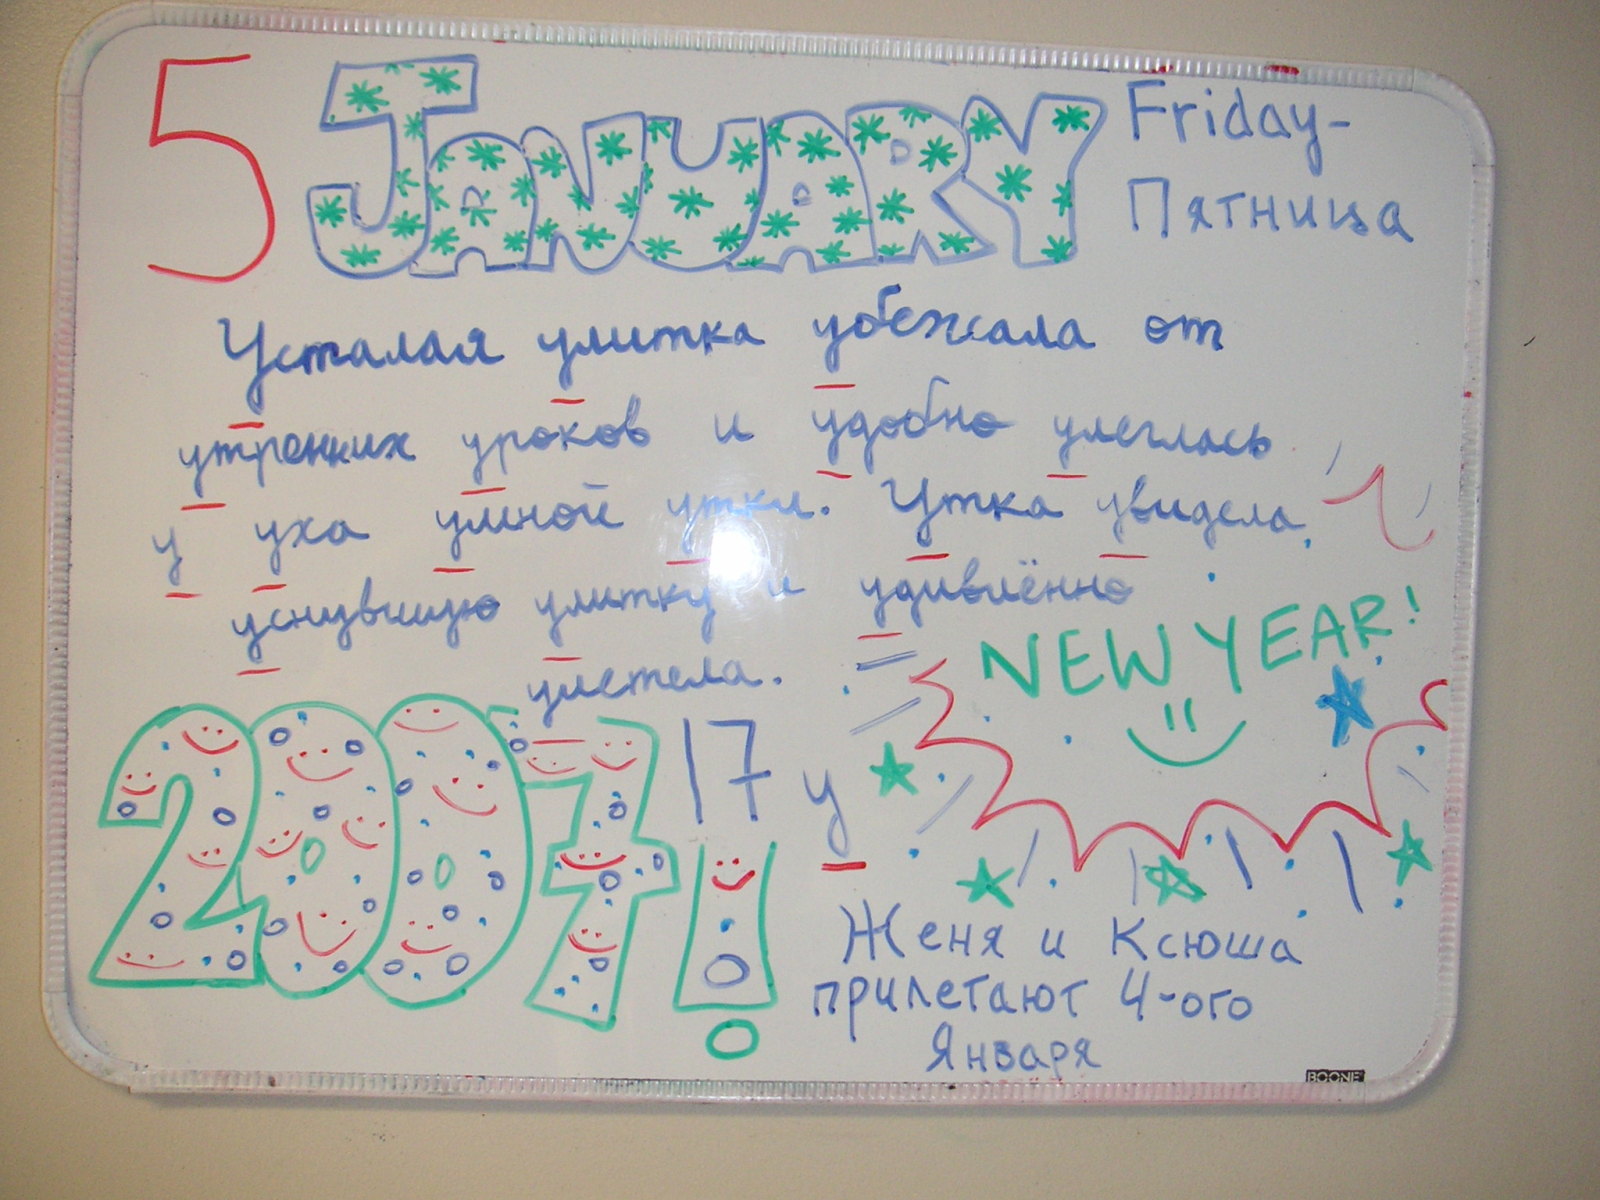 5 JANUARY Friday-
Пятница
Усталая улитка убежала от
утренних уроков и удобно улеглась
у уха умной утки. Утка увидела
уснувшую улитку и удивлённо
улетела.
NEW YEAR!
2007!
17 у
Женя и Ксюша
прилетают 4-ого
Января
BOONE